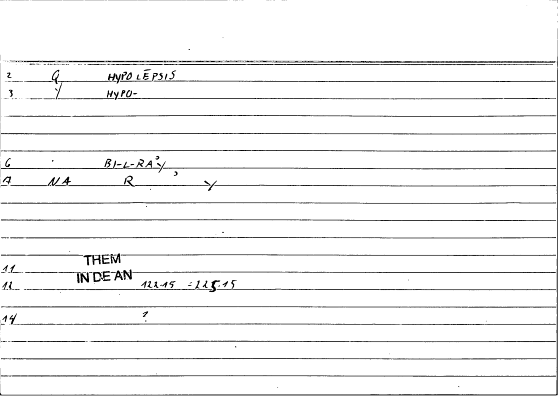 2 G HYPOLĒPSIS
3 Y HYPO-
6 BI-L-RA'Y
A NA R ' Y
11 THEM
IN DE AN
12 122.15 = 225.15
14 ?